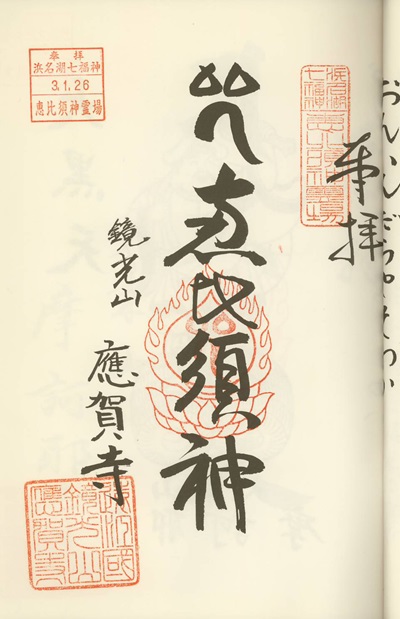 奉拝
浜名湖七福神
3.1.26
恵比須神霊場
浜名湖
七福
恵比須霊場
奉拝
恵比須神
鏡光山
應賀寺
遠江國
鏡光山
應賀寺